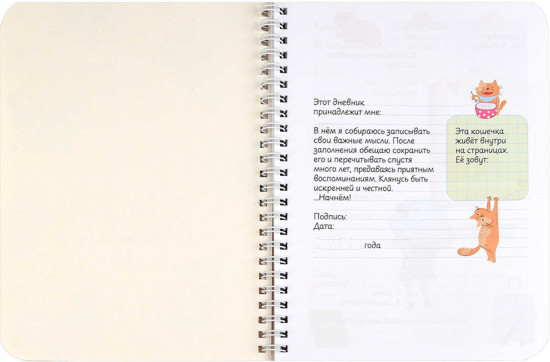 Этот дневник
принадлежит мне:
В нём я собираюсь записывать
свои важные мысли. После
заполнения обещаю сохранить
его и перечитывать спустя
много лет, предаваясь приятным
воспоминаниям. Клянусь быть
искренней и честной.
...Начнём!
Подпись:
Дата:
года
Эта кошечка
живёт внутри
на страницах.
Её зовут: